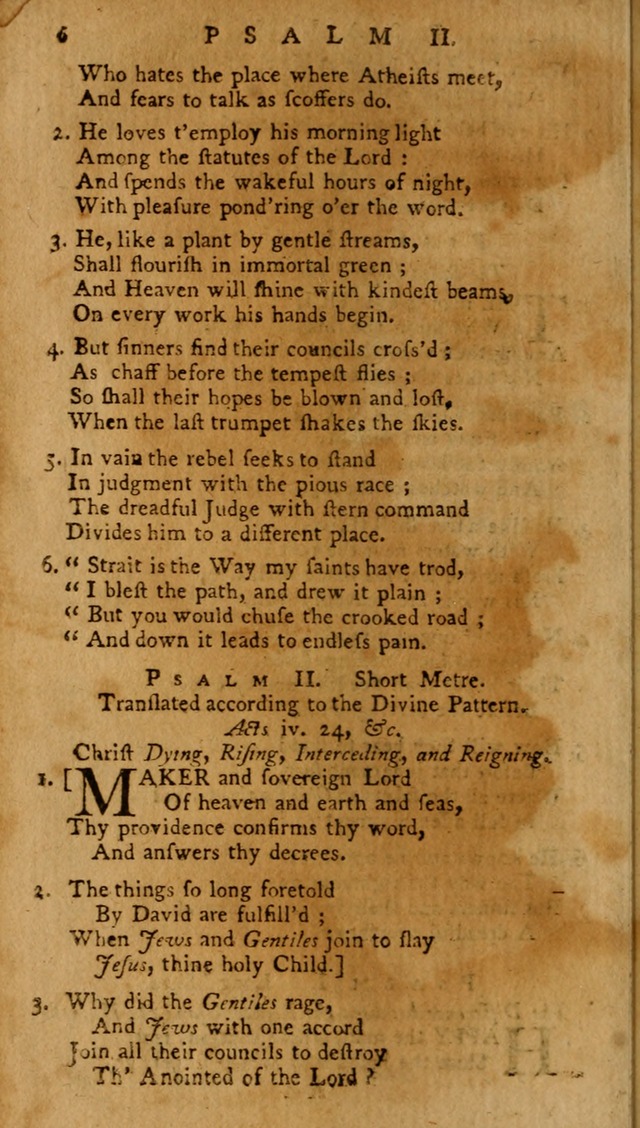 6 PSALM II.
Who hates the place where Atheiſts meet,
And fears to talk as ſcoffers do.
2. He loves t'employ his morning light
Among the ſtatutes of the Lord :
And ſpends the wakeful hours of night,
With pleaſure pond'ring o'er the word.
3. He, like a plant by gentle ſtreams,
Shall flouriſh in immortal green ;
And Heaven will ſhine with kindeſt beams,
On every work his hands begin.
4. But ſinners find their councils croſs'd ;
As chaff before the tempeſt flies ;
So ſhall their hopes be blown and loſt,
When the laſt trumpet ſhakes the ſkies.
5. In vain the rebel ſeeks to ſtand
In judgment with the pious race ;
The dreadful Judge with ſtern command
Divides him to a different place.
6. “ Strait is the Way my ſaints have trod,
“ I bleſt the path, and drew it plain ;
“ But you would chuſe the crooked road ;
“ And down it leads to endleſs pain.
PSALM II. Short Metre.
Tranſlated according to the Divine Pattern.
Acts iv. 24, &c.
Chriſt Dying, Riſing, Interceding, and Reigning.
1. [MAKER and ſovereign Lord
Of heaven and earth and ſeas,
Thy providence confirms thy word,
And anſwers thy decrees.
2. The things ſo long foretold
By David are fulfill'd ;
When Jews and Gentiles join to ſlay
Jeſus, thine holy Child.]
3. Why did the Gentiles rage,
And Jews with one accord
Join all their councils to deſtroy
Th' Anointed of the Lord ?